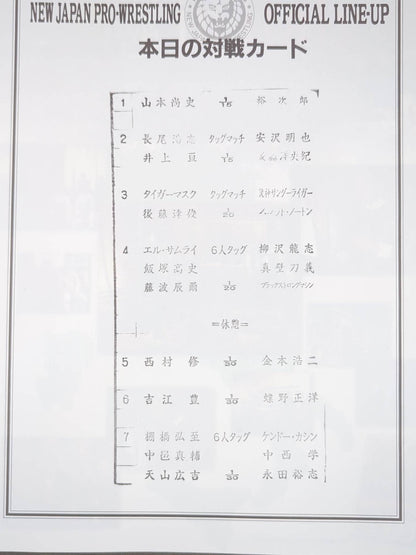 NEW JAPAN PRO-WRESTLING OFFICIAL LINE-UP
本日の対戦カード
1 山本尚史 1/15 裕次郎
2 長尾浩志 タッグマッチ 安沢明也
井上亘 1/15
3 タイガーマスク タッグマッチ 獣神サンダーライガー
後藤達俊 1/20 スコット・ノートン
4 エル・サムライ 6人タッグ 柳沢龍志
飯塚高史 真壁刀義
藤波辰爾 1/20 ブラックストロングマシン
=休憩=
5 西村修 1/30 金本浩二
6 吉江豊 1/30 蝶野正洋
7 棚橋弘至 6人タッグ ケンドー・カシン
中邑真輔 中西学
天山広吉 1/30 永田裕志